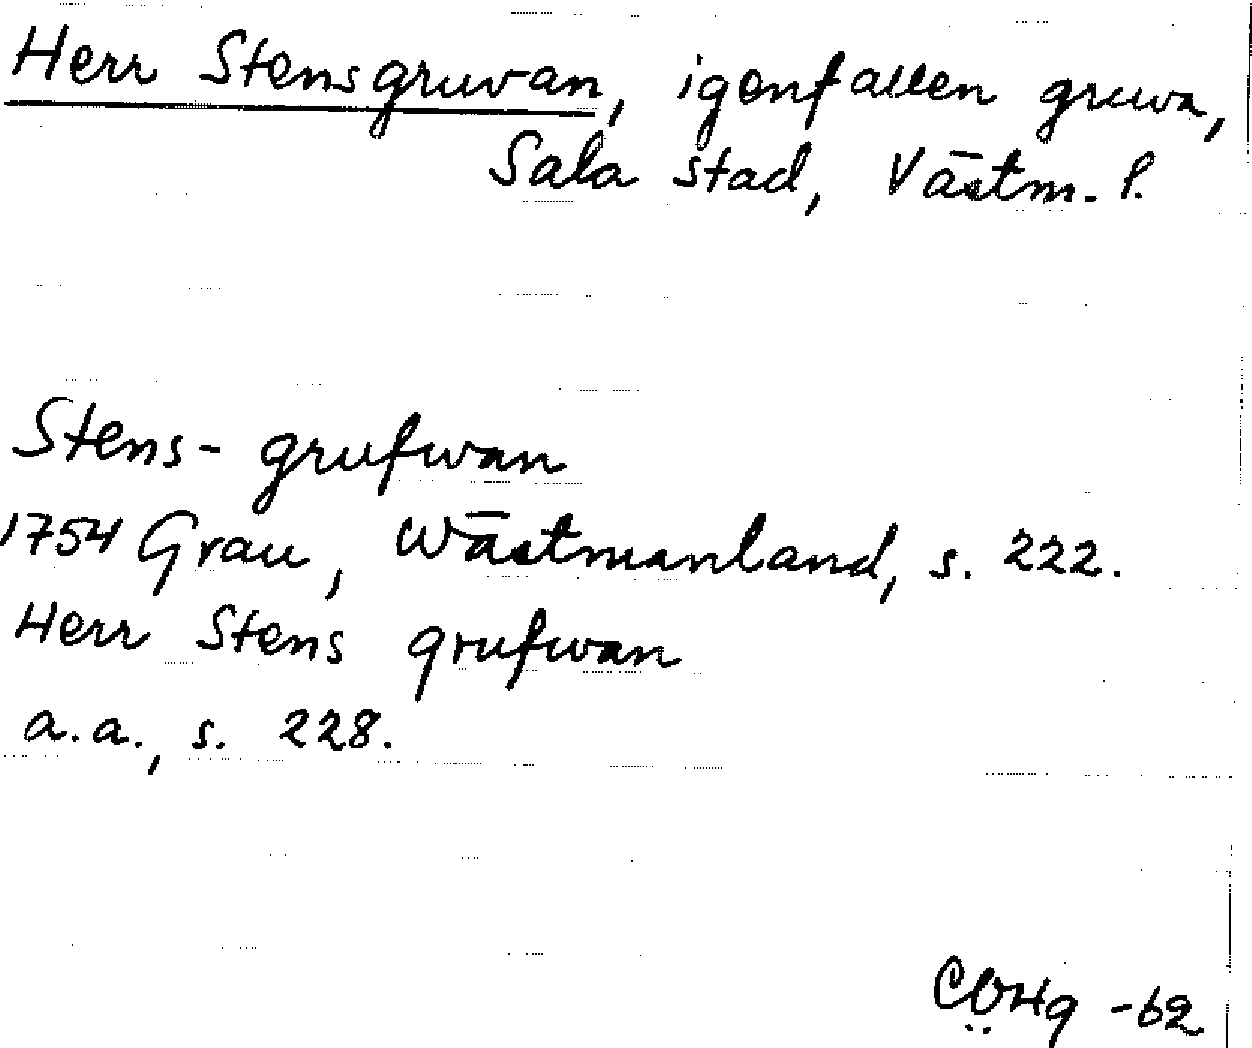 Herr Stensgruvan, igenfallen gruva,
Sala stad, Västm. l.
Stens- grufwan
1754 Grau, Wästmanland, s. 222.
Herr Stens grufwan
a.a., s. 228.
-62